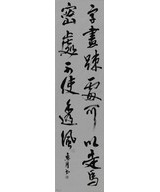 字畫疎處可以走馬
密處不使透風